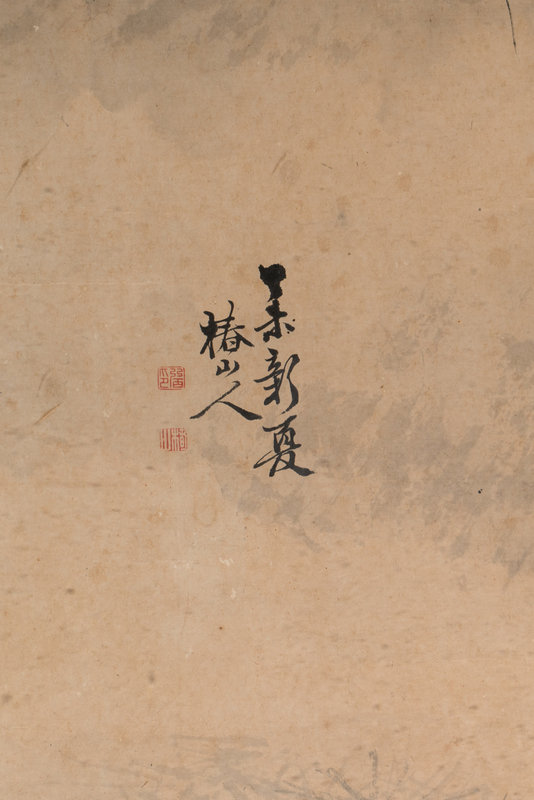 丁未新夏
椿山人